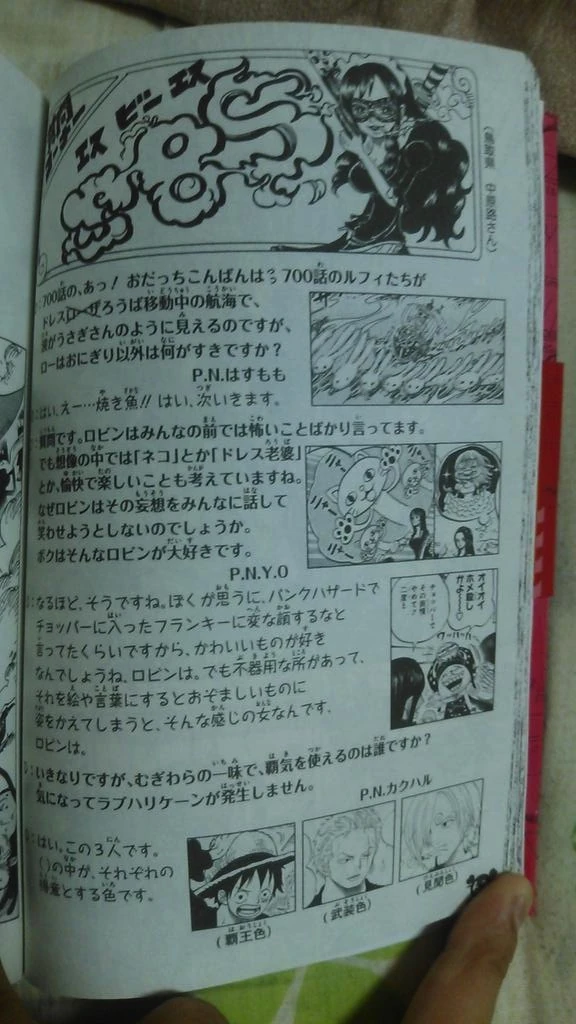 エス ビー エス
SBS
(鳥取県 中原路さん)
700話の、あっ! おだっちこんばんはっっ 700話のルフィたちが
ドレスローザろうば移動中の航海で、
波がうさぎさんのように見えるのですが、
ローはおにぎり以外は何がすきですか?
P.N.はすもも
はい、えー…焼き魚!! はい、次いきます。
質問です。ロビンはみんなの前では怖いことばかり言ってます。
でも想像の中では「ネコ」とか「ドレス老婆」
とか、愉快で楽しいことも考えていますね。
なぜロビンはその妄想をみんなに話して
笑わせようとしないのでしょうか。
ボクはそんなロビンが大好きです。
P.N.Y.O
ニャー
ニャー
なるほど、そうですね。ぼくが思うに、パンクハザードで
チョッパーに入ったフランキーに変な顔するなと
言ってたくらいですから、かわいいものが好き
なんでしょうね、ロビンは。でも不器用な所があって、
それを絵や言葉にするとおぞましいものに
姿をかえてしまうと、そんな感じの女なんです、
ロビンは。
オイオイ
ホメ殺し
かよ〜
チョッパーで
その表情
やめて
二度と
D:いきなりですが、むぎわらの一味で、覇気を使えるのは誰ですか?
気になってラブハリケーンが発生しません。
P.N.カクハル
はい。この3人です。
( )の中が、それぞれの
得意とする色です。
(覇王色)
(武装色)
(見聞色)